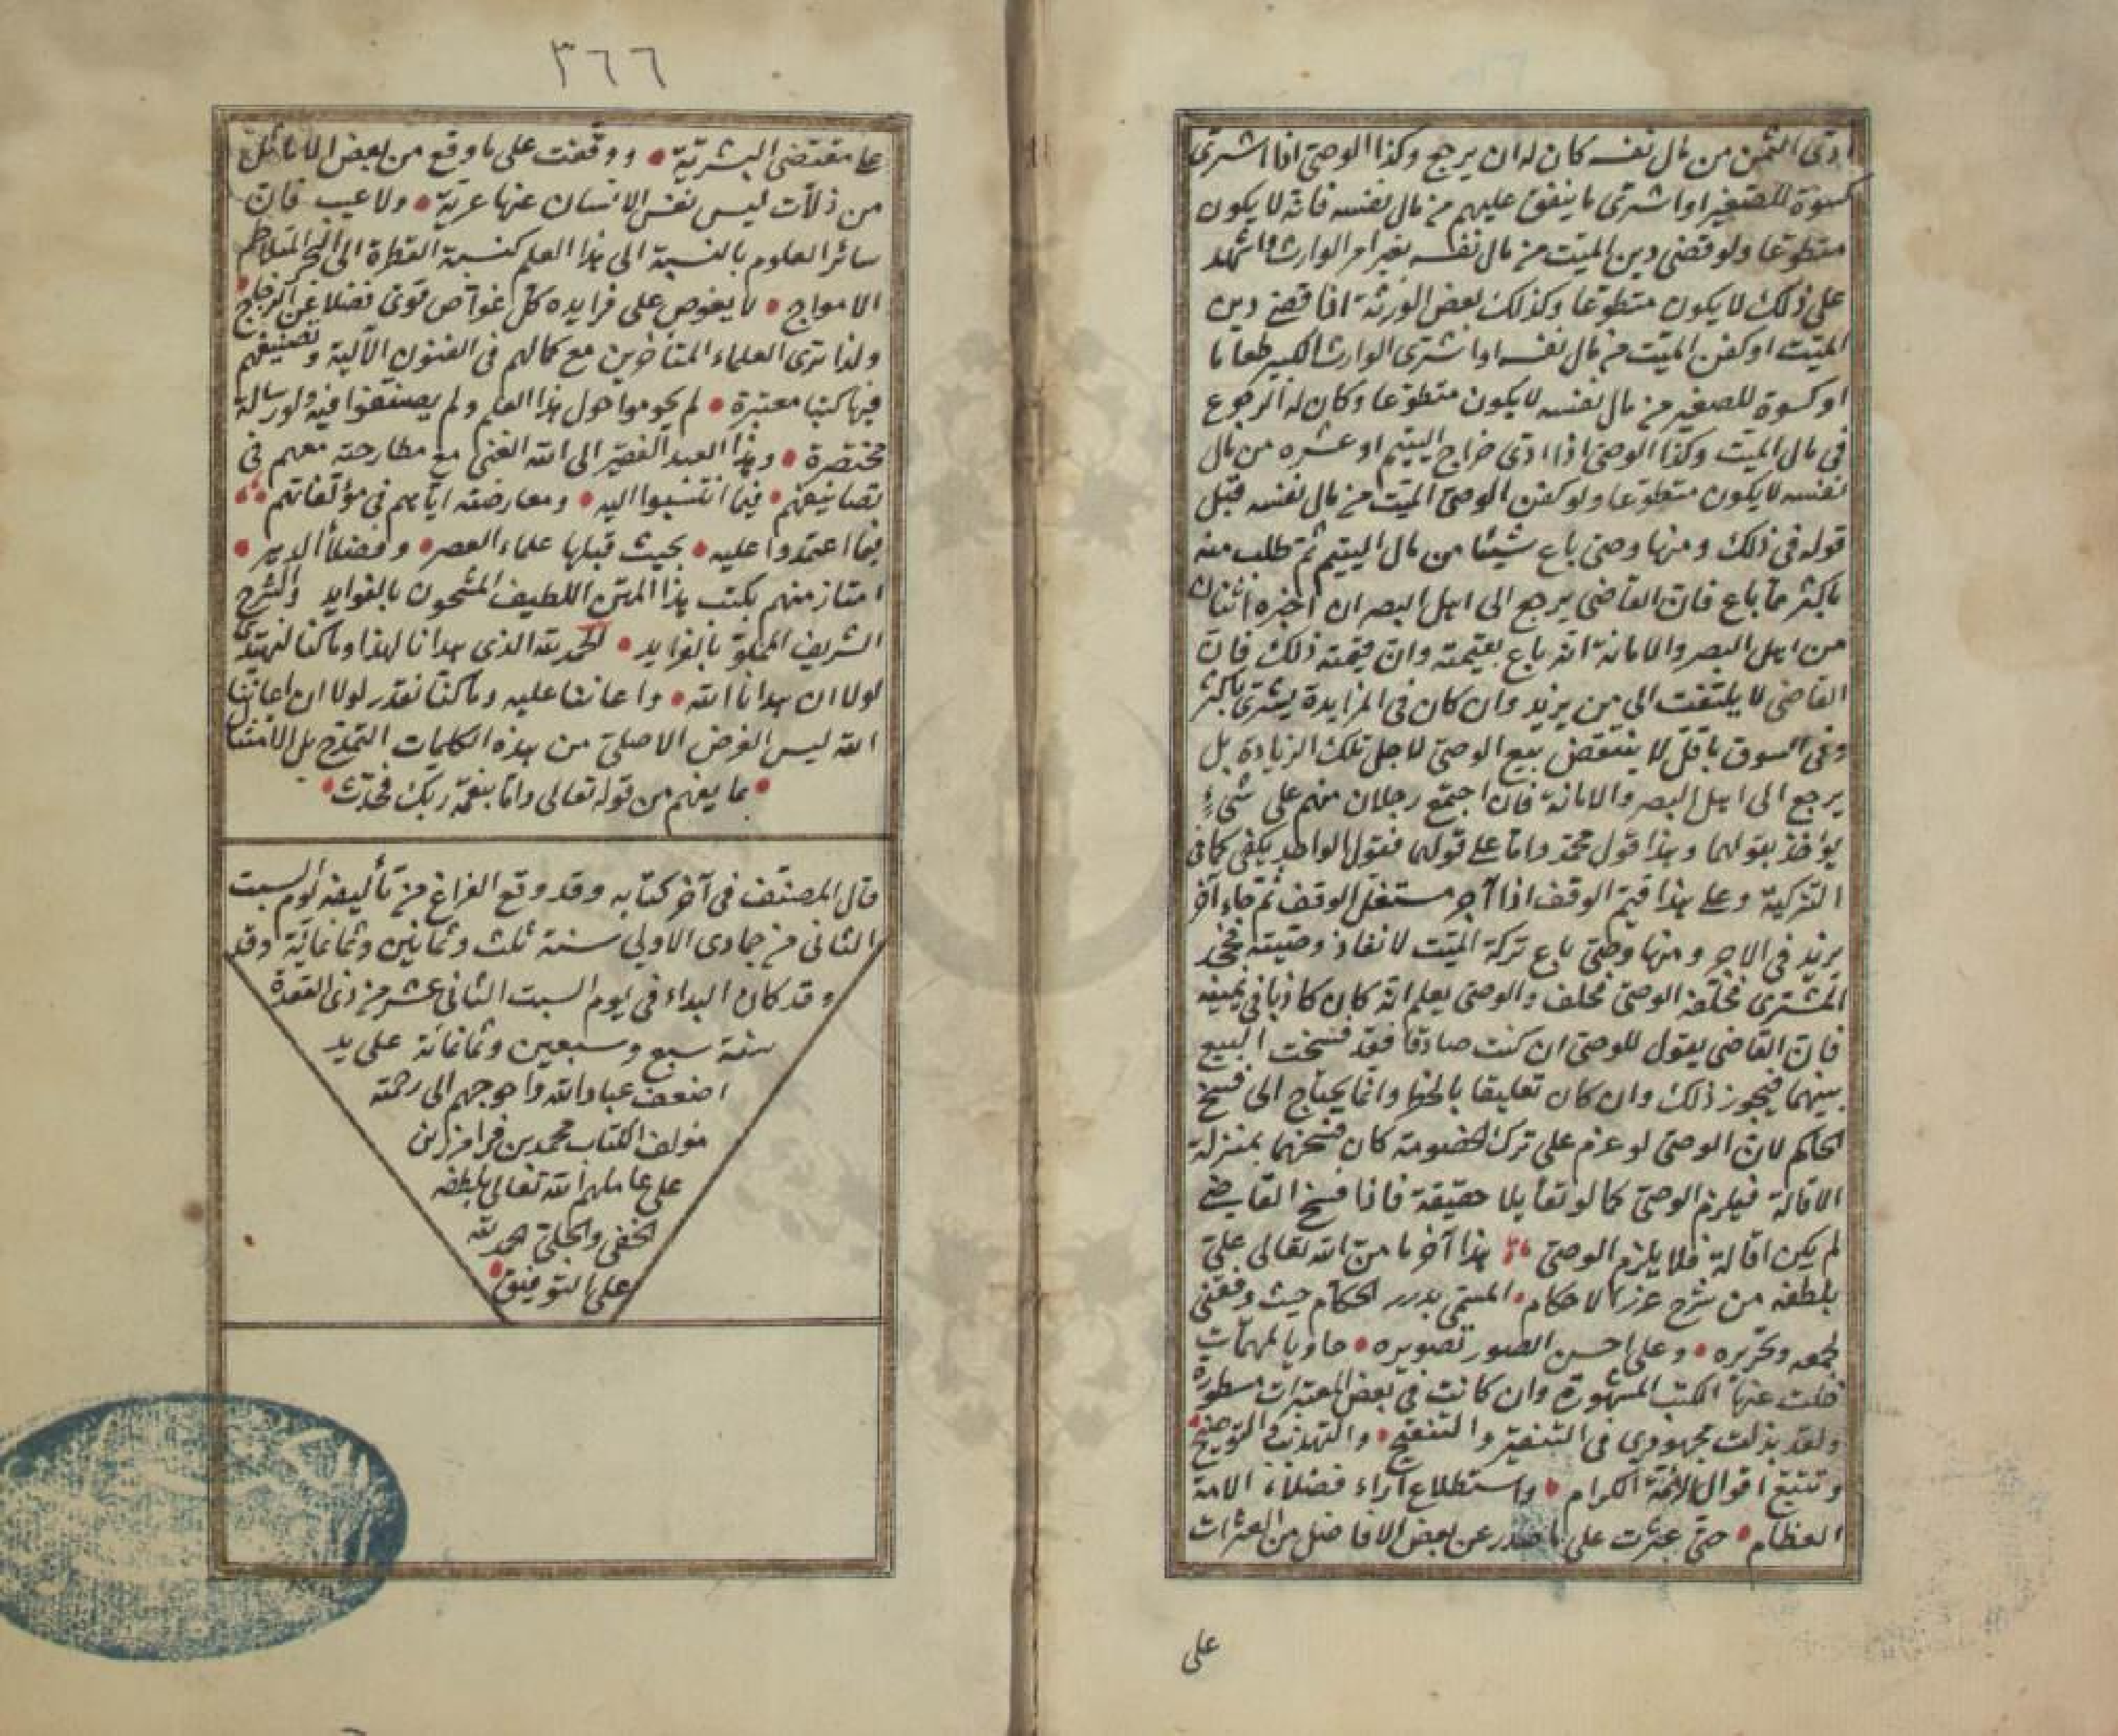 ادى الثمن من مال نفسه كان له ان يرجع وكذا الوصى اذا اشترى
كسوة للصغير او اشترى ما ينفق عليهم من مال نفسه فانه لا يكون
متطوعا ولو قضى دين الميت من مال نفسه بغير امر الوارث واشهد
على ذلك لا يكون متطوعا وكذلك بعض الورثة اذا قضى دين
الميت او كفن الميت من مال نفسه او اشترى الوارث الكبير طعاما
او كسوة للصغير من مال نفسه لا يكون متطوعا وكان له الرجوع
فى مال الميت وكذا الوصى اذا ادى خراج اليتيم او عشره من مال
نفسه لا يكون متطوعا ولو كفن الوصى الميت من مال نفسه قبل
قوله فى ذلك ومنها وصى باع شيئا من مال اليتيم ثم طلب منه
باكثر مما باع فان القاضى يرجع الى اهل البصر ان اخبره اثنان
من اهل البصر والامانة انه باع بقيمته وان قيمته ذلك فان
القاضى لا يلتفت الى من يزيد وان كان فى المزايدة يشترى باكثر
وفى السوق باقل لا ينتقض بيع الوصى لاجل تلك الزيادة بل
يرجع الى اهل البصر والامانة فان اجتمع رجلان منهم على شىء
يؤخذ بقولهما وهذا قول محمد واما على قولهما فقول الواحد يكفى كما فى
التزكية وعلى هذا قيم الوقف اذا آجر مستغل الوقف ثم جاء آخر
يزيد فى الاجر ومنها وصى باع تركة الميت لانفاذ وصيته فجحد
المشترى فحلفه الوصى فحلف والوصى يعلم انه كان كاذبا فى يمينه
فان القاضى يقول للوصى ان كنت صادقا فقد فسخت البيع
بينهما فيجوز ذلك وان كان تعليقا بالخطر وانما يحتاج الى فسخ
الحاكم لان الوصى لو عزم على ترك الخصومة كان فسخهما بمنزلة
الاقالة فيلزم الوصى كما لو تقايلا حقيقة فاذا فسخ القاضى
لم يكن اقالة فلا يلزم الوصى هذا آخر ما من الله تعالى على
بلطفه من شرح غرر الاحكام المسمى بدرر الحكام حيث وفقنى
لجمعه وتحريره وعلى احسن الصور تصويره حاويا لمهمات
خلت عنها الكتب المشهورة وان كانت فى بعض المعتبرات مسطورة
ولقد بذلت مجهودى فى التنقير والتنقيح والتهذيب والتوضيح
وتتبع اقوال الائمة الكرام واستطلاع آراء فضلاء الامة
العظام حتى عثرت على ما صدر عن بعض الافاضل من العثرات
على
٣٦٦
على مقتضى البشرية ووقفت على ما وقع من بعض الاماثل
من زلات ليس نفس الانسان عنها عرية ولا عيب فان
سائر العلوم بالنسبة الى هذا العلم كنسبة القطرة الى البحر المتلاطم
الامواج لا يغوص على فرايده كل غواص قوى فضلا عن الزجاج
ولذا ترى العلماء المتأخرين مع كمالهم فى الفنون الآلية وتصنيفهم
فيها كتبا معتبرة لم يحوموا حول هذا العلم ولم يصنفوا فيه ولو رسالة
مختصرة وهذا العبد الفقير الى الله الغنى مع مطارحته معهم فى
تصانيفهم فيما انتسبوا اليه ومعارضته اياهم فى مؤلفاتهم
فيما اعتمدوا عليه بحيث قبلها علماء العصر وفضلاء الدهر
امتاز منهم بكتب هذا المتن اللطيف المشحون بالفوايد والشرح
الشريف المملو بالفرايد الحمد لله الذى هدانا لهذا وما كنا لنهتدى
لولا ان هدانا الله واعاننا عليه وما كنا نقدر لولا ان اعاننا
الله ليس الغرض الاصلى من هذه الكلمات التمدح بل الامتثال
بما يفهم من قوله تعالى واما بنعمة ربك فحدث
قال المصنف فى آخر كتابه وقد وقع الفراغ من تأليفه يوم السبت
الثانى من جمادى الاولى سنة ثلث وثمانين وثمانمائة وقد
وقد كان البداء فى يوم السبت الثانى عشر من ذى القعدة
سنة سبع وسبعين وثمانمائة على يد
اضعف عباد الله واحوجهم الى رحمته
مؤلف الكتاب محمد بن فرامرز بن
على عاملهم الله تعالى بلطفه
الخفى والجلى الحمد لله
على التوفيق